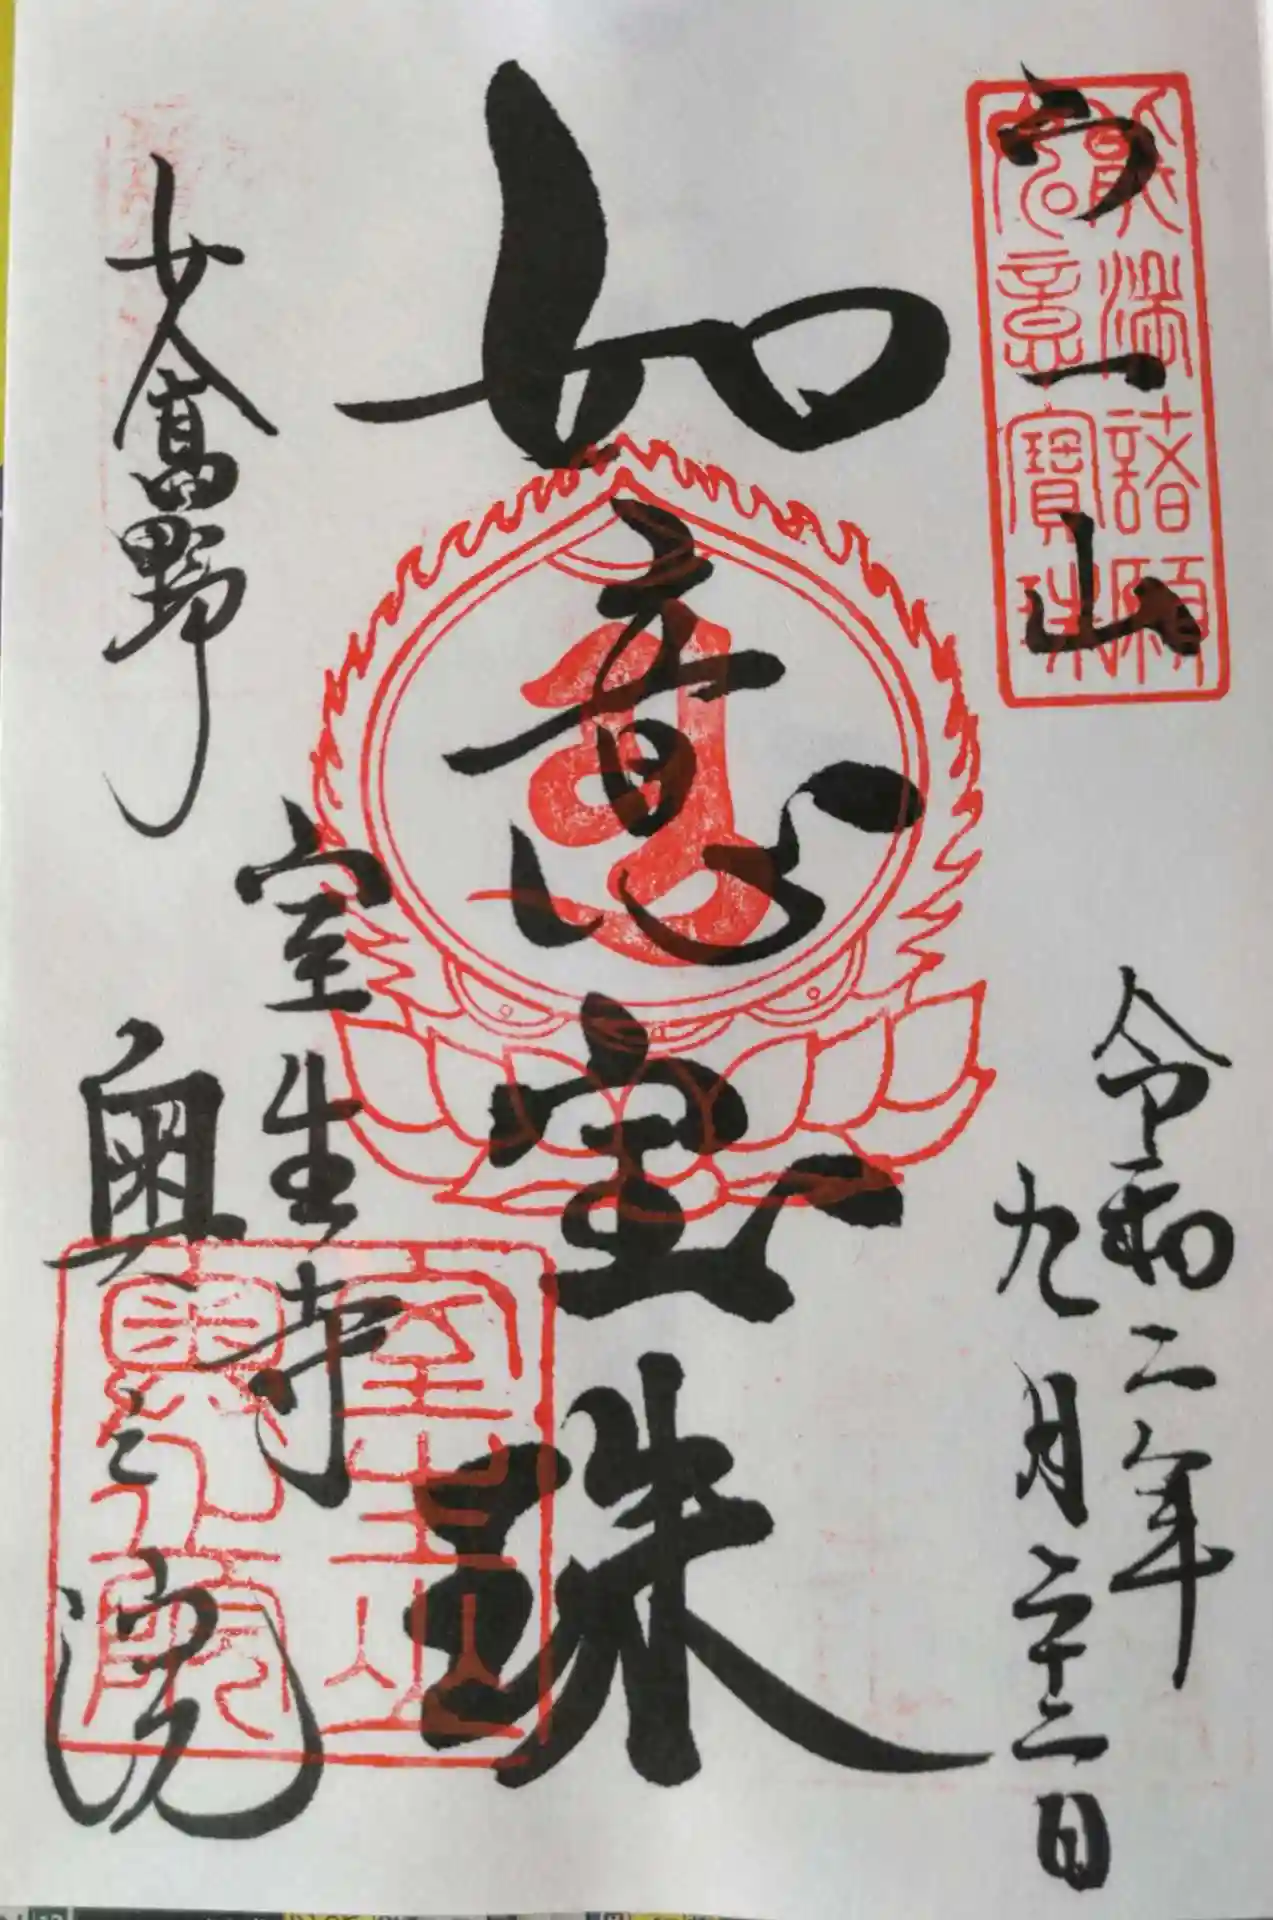 宀一山
能滿諸願
如意寶珠
令和二年
九月二十二日
如意宝珠
女人高野
室生寺
奥之院
室生山
奥之院